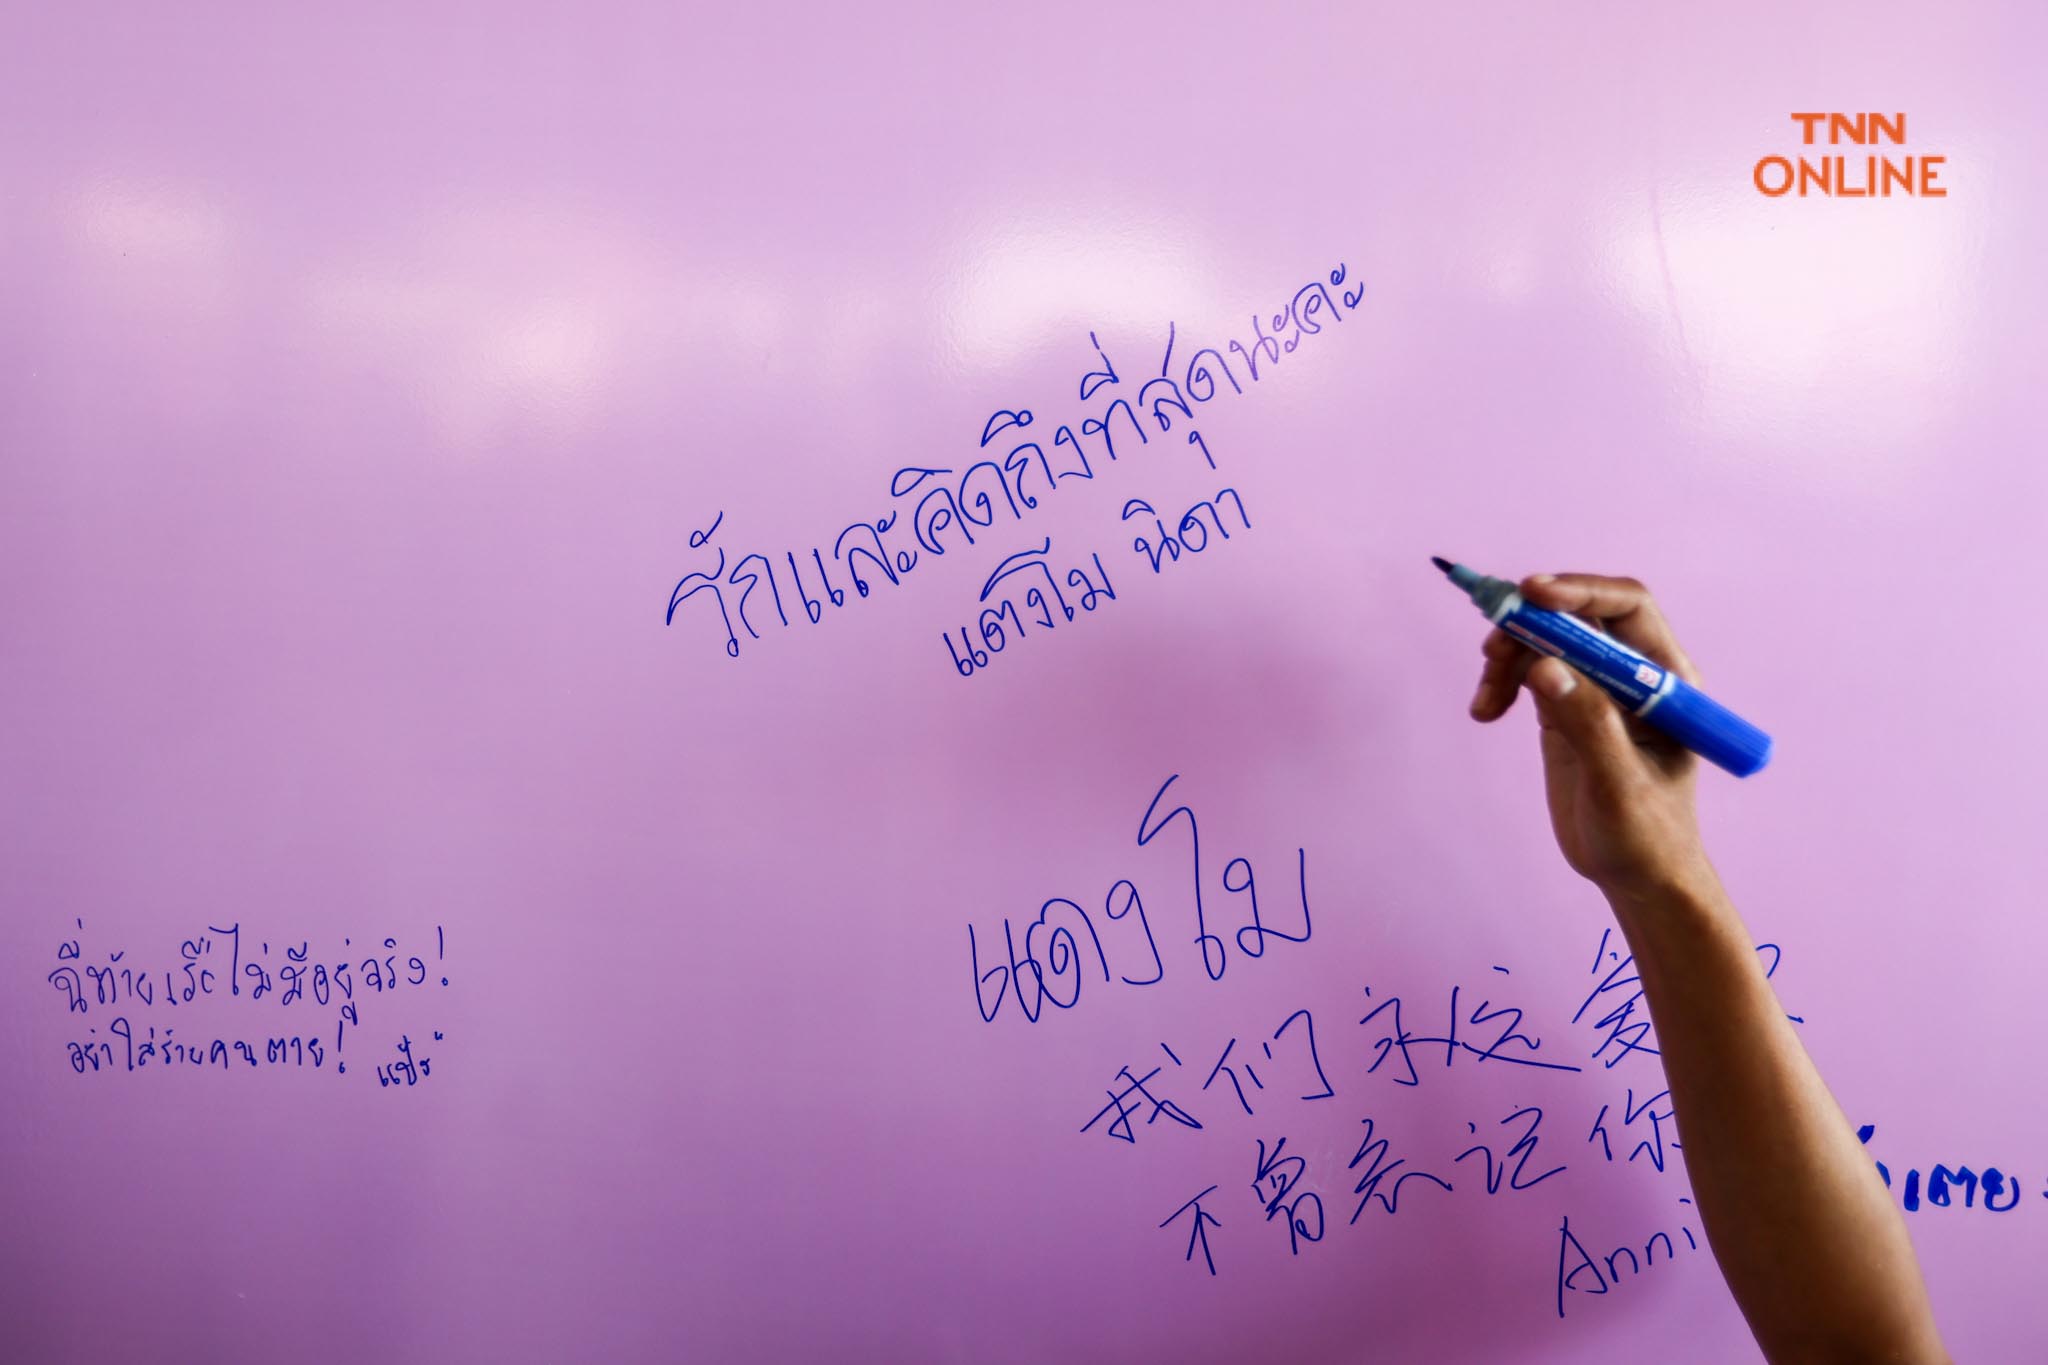 TNN
ONLINE
รักและคิดถึงที่สุดนะคะ
แตงโม นิดา
แตงโม
我们永远爱
不曾忘记你
Anni
ฉี่ท้ายเรือไม่มีอยู่จริง!
อย่าใส่ร้ายคนตาย!